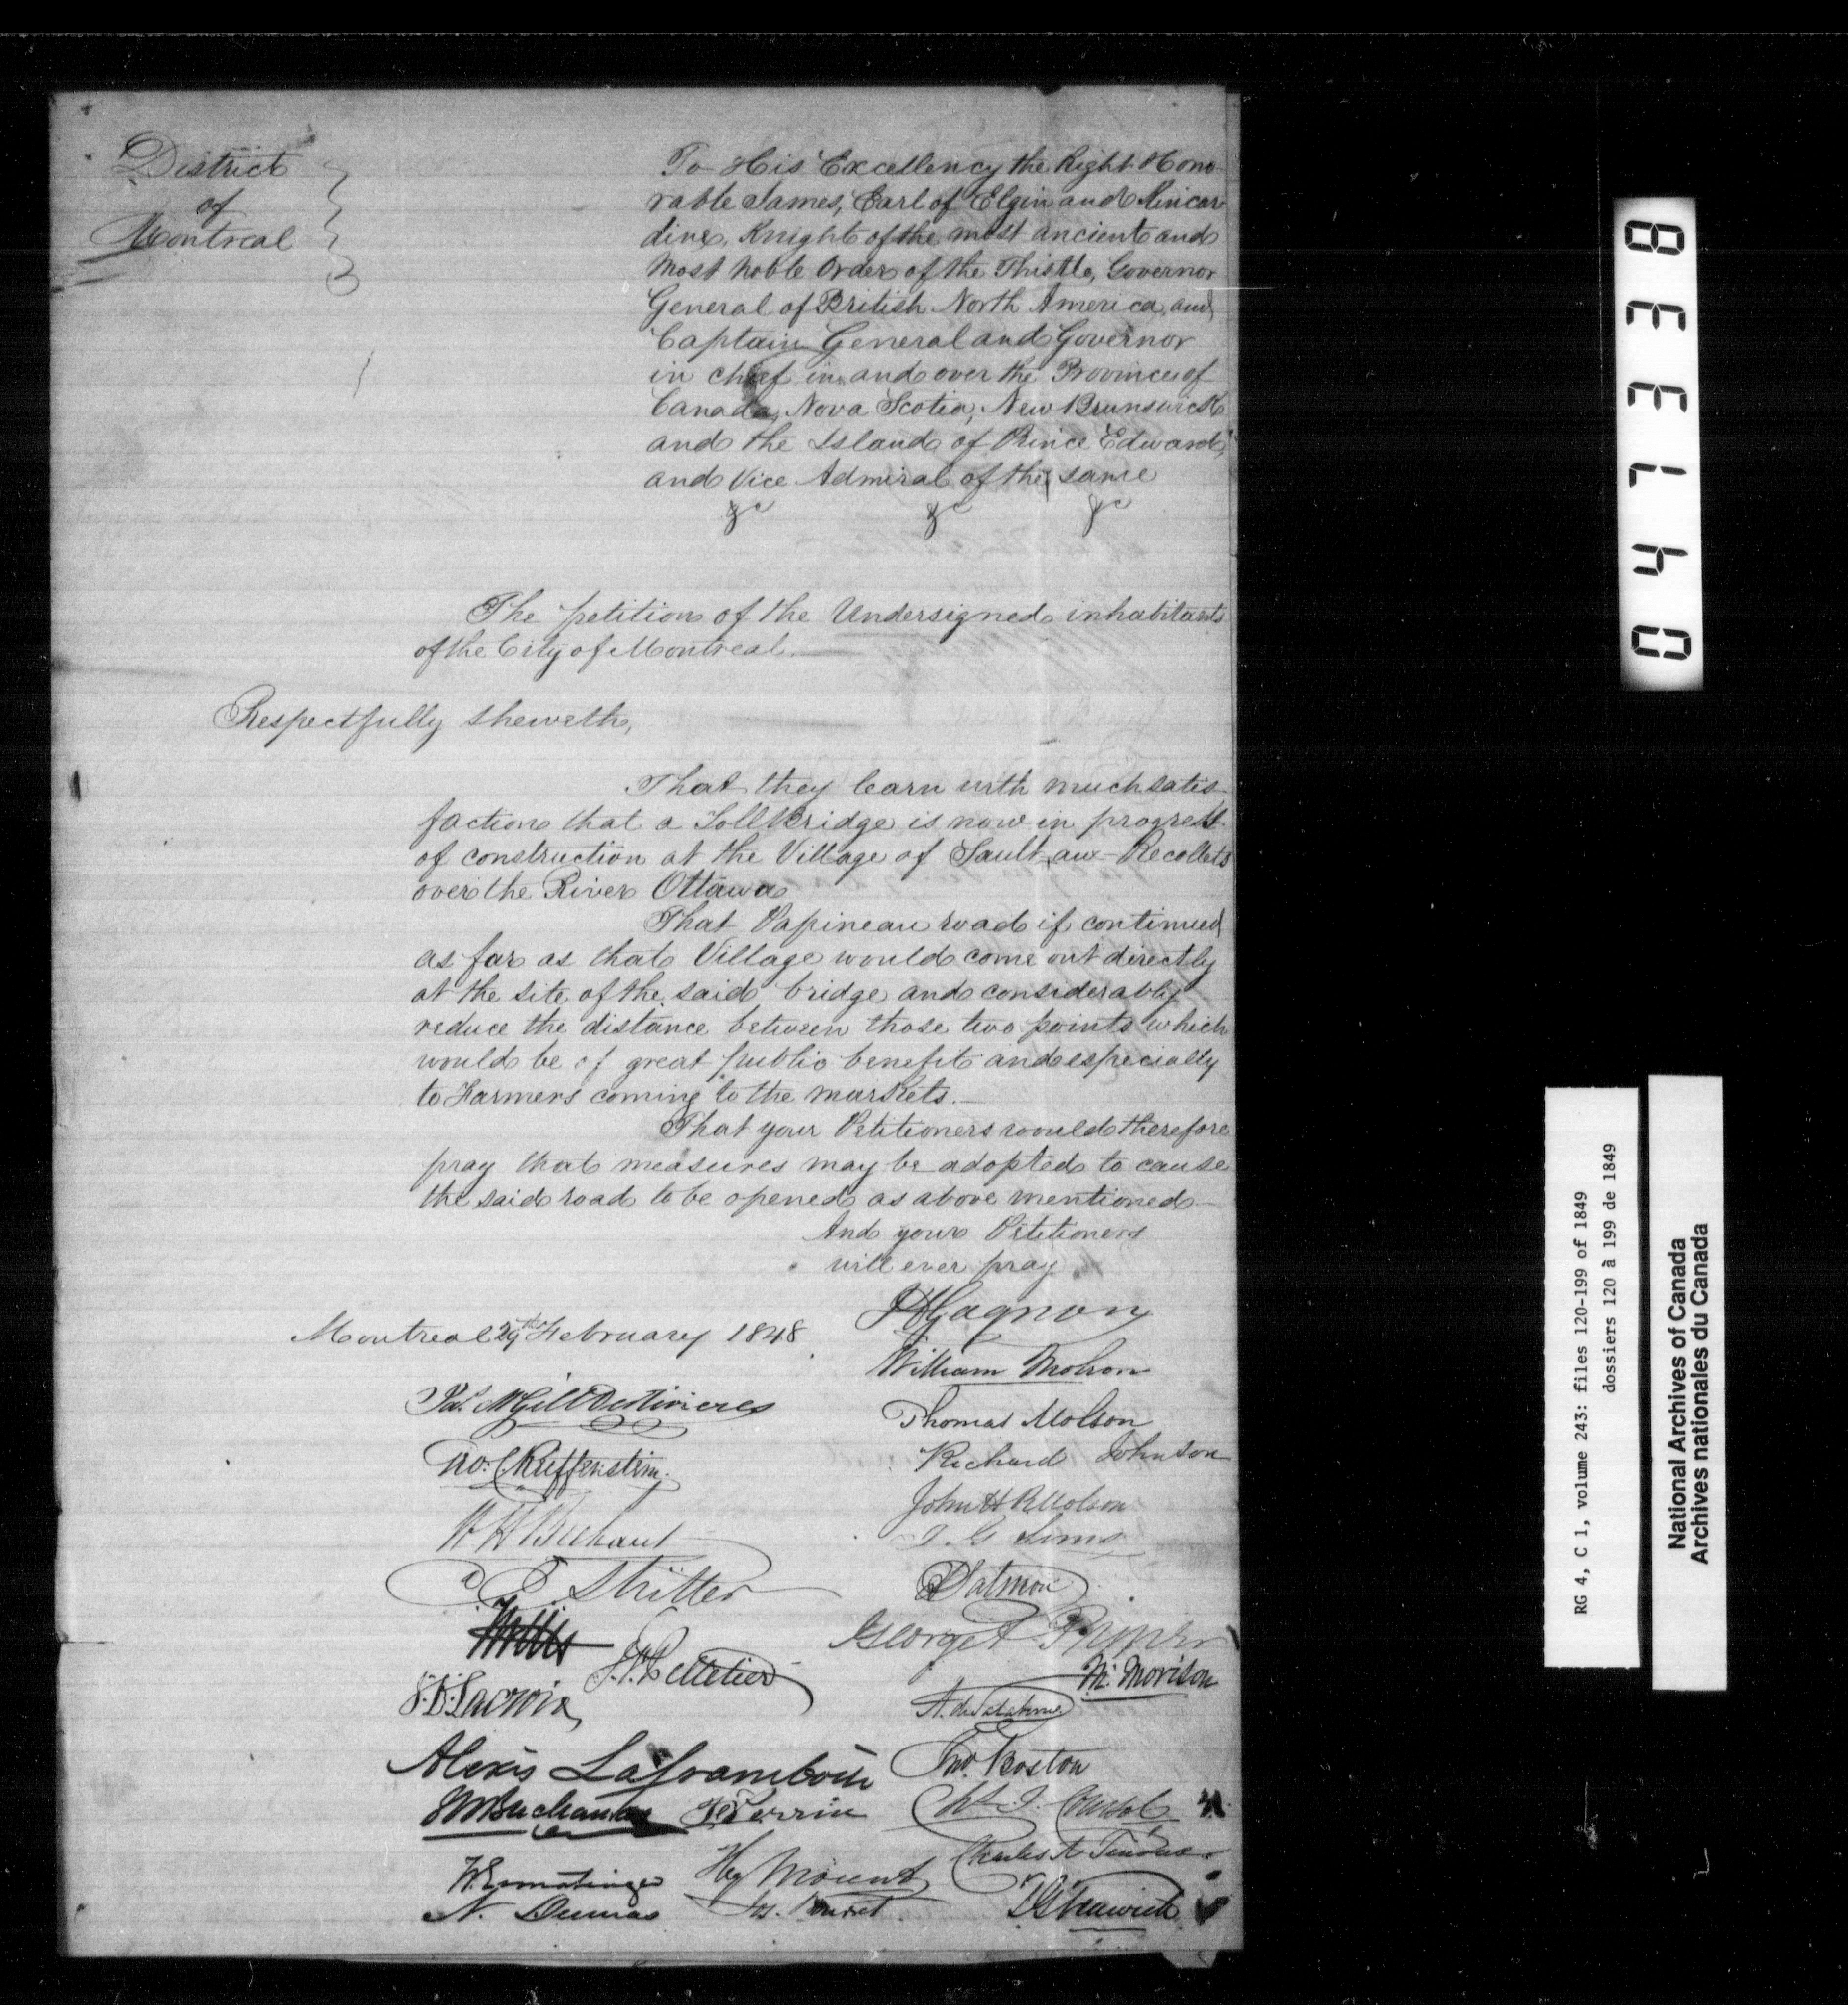 District
of
Montreal
To His Excellency the Right Hono
rable James, Earl of Elgin and Kincar
dine, Knight of the most ancient and
Most Noble Order of the Thistle, Governor
General of British North America, and
Captain General and Governor
in chief in and over the Province of
Canada, Nova Scotia, New Brunswick
and the Island of Prince Edward,
and Vice Admiral of the same
&c &c &c
The petition of the Undersigned inhabitants
of the City of Montreal.
Respectfully sheweth,
That they learn with much satis-
faction that a Toll Bridge is now in progress
of construction at the Village of Sault au Recollets
over the River Ottawa
That Papineau road if continued
as far as that Village would come out directly
at the site of the said bridge and considerably
reduce the distance between those two points which
would be of great public benefit and especially
to Farmers coming to the markets.
That your Petitioners would therefore
pray that measures may be adopted to cause
the said road to be opened as above mentioned
And your Petitioners
will ever pray
Gagnon
Montreal 29th February 1848
William Molson
Thomas Molson
Richard Johnson
John H R Molson
Sims
McGill
Pelletier
Lacroix
George
M. Morison
Alexis Laframboise
Jno. Boston
Buchanan
Perrin
W. Ermatinger
Hy Mount
Charles A
N. Dumas
0471338
RG 4, C 1, volume 243: files 120-199 of 1849
dossiers 120 à 199 de 1849
National Archives of Canada
Archives nationales du Canada